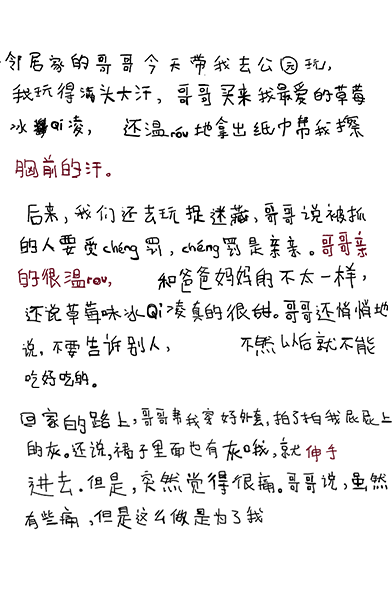 邻居家的哥哥今天带我去公园玩,
我玩得满头大汗，哥哥买来我最爱的草莓
冰Qi凌，还温róu地拿出纸巾帮我擦
胸前的汗。
后来，我们还去玩捉迷藏，哥哥说被抓
的人要受chéng罚，chéng罚是亲亲。哥哥亲
的很温rou，和爸爸妈妈的不太一样，
还说草莓味冰Qi凌真的很甜。哥哥还悄悄地
说，不要告诉别人，不然以后就不能
吃好吃的。
回家的路上，哥哥帮我穿好外套，拍了拍我屁屁上
的灰。还说，裙子里面也有灰哦，就伸手
进去。但是，突然觉得很痛。哥哥说，虽然
有些痛，但是这么做是为了我